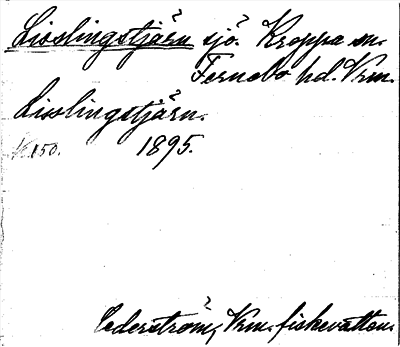 Lisslingstjärn sjö. Kroppa sn.
Fernebo hd. Vrm.
Lisslingstjärn.
K. 150. 1895.
Cederström, Vrm. fiskevatten.